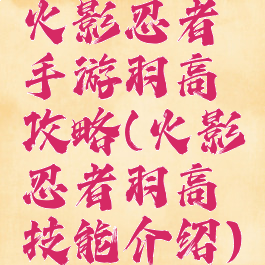 火影忍者
手游羽高
攻略(火影
忍者羽高
技能介绍)